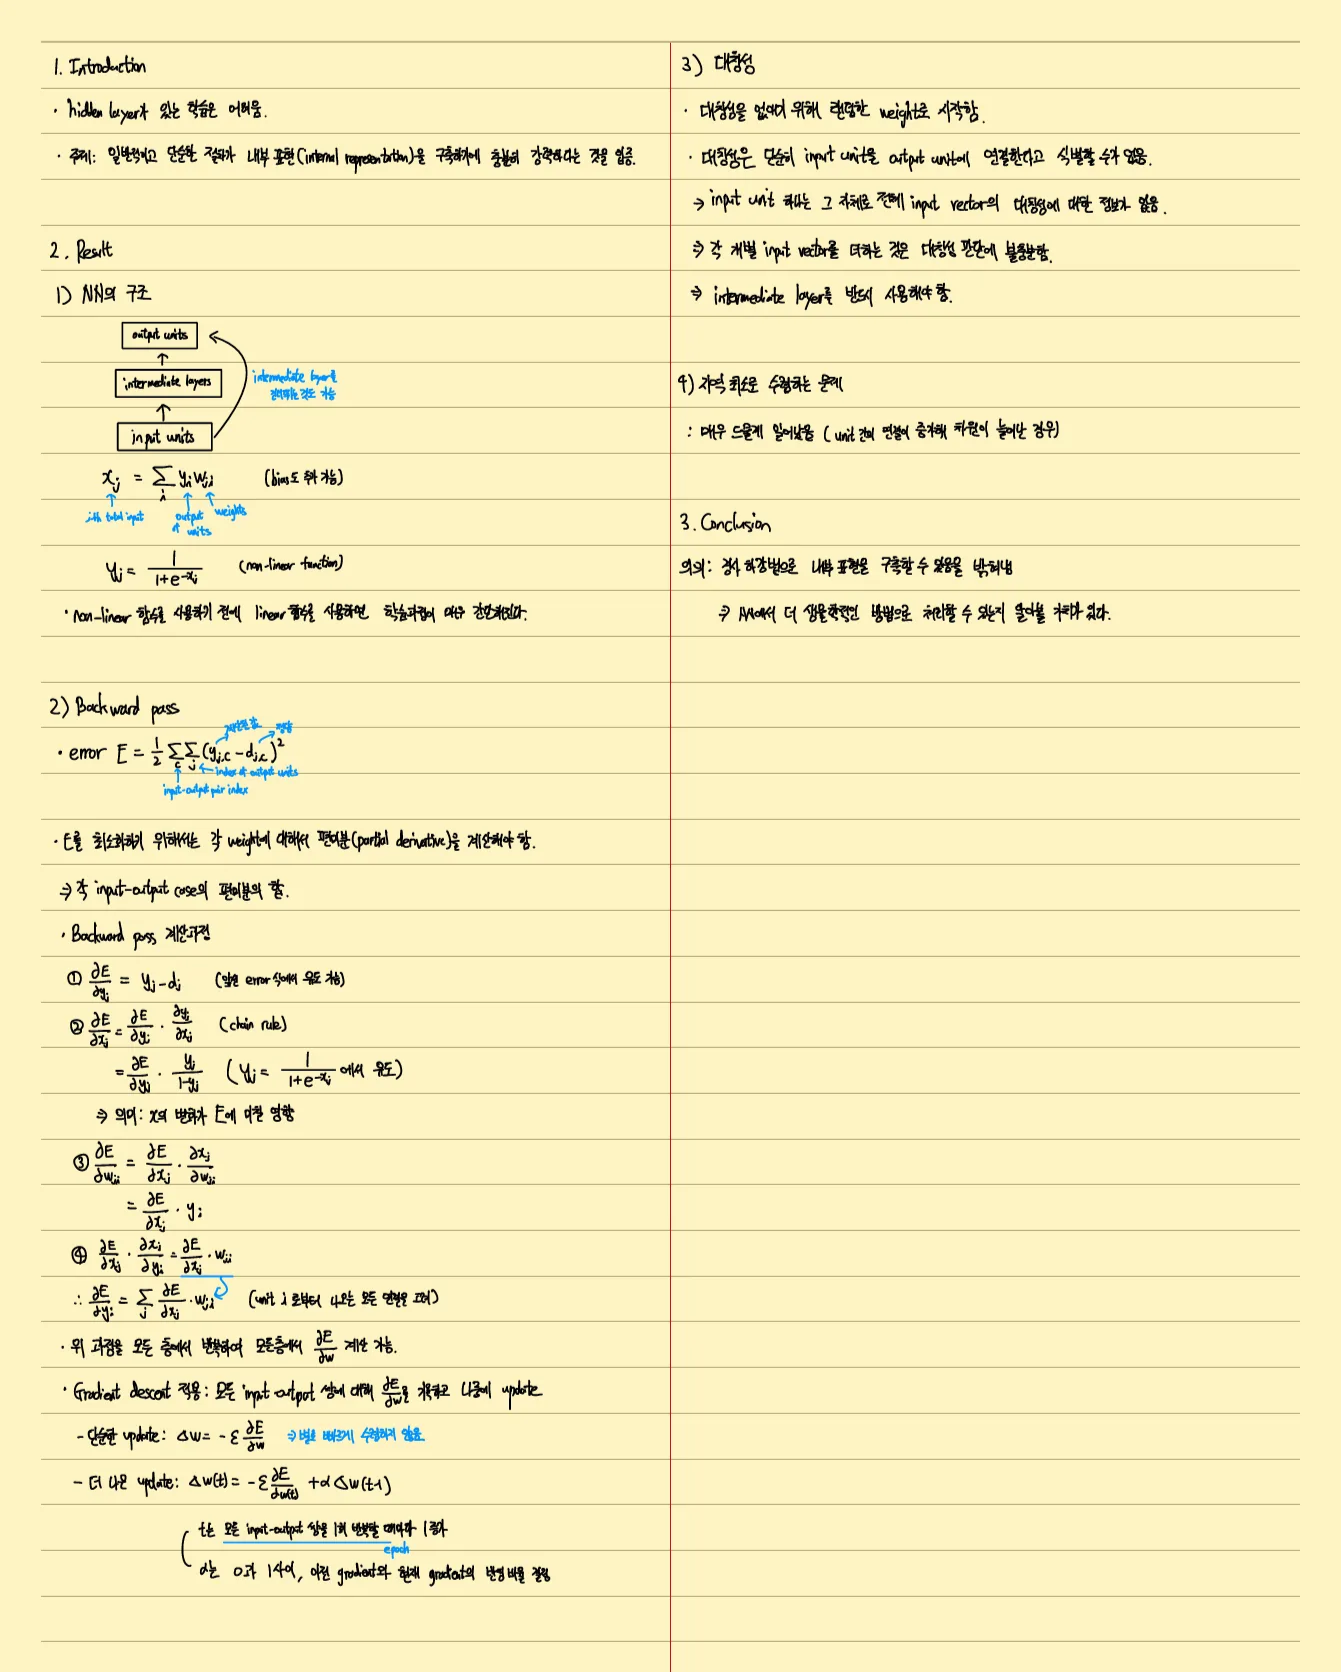 1. Introduction
· hidden layer가 있는 학습은 어려움.
· 주제: 일반적이고 단순한 절차가 내부 표현(internal representation)을 구축하기에 충분히 강력하다는 것을 입증.
2. Result
1) NN의 구조
output units
intermediate layers
input units
intermediate layer를
건너뛰는 것도 가능
xⱼ = Σᵢ yᵢwⱼᵢ (bias도 추가 가능)
jth total input
output of units
weights
yⱼ = 1/(1+e^-xⱼ) (non-linear function)
· non-linear 함수를 사용하기 전에 linear 함수를 사용하면 학습과정이 매우 간단해진다.
2) Backward pass
· error E = 1/2 Σ_c Σⱼ (yⱼ,c - dⱼ,c)²
정답
index of output units
input-output pair index
· E를 최소화하기 위해서는 각 weight에 대해서 편미분(partial derivative)을 계산해야 함.
⇒ 각 input-output case의 편미분의 합.
· Backward pass 계산과정
① ∂E/∂yⱼ = yⱼ - dⱼ (앞선 error 식에서 유도 가능)
② ∂E/∂xⱼ = ∂E/∂yⱼ · ∂yⱼ/∂xⱼ (chain rule)
= ∂E/∂yⱼ · yⱼ/(1-yⱼ) (yⱼ = 1/(1+e^-xⱼ) 에서 유도)
⇒ 의미: x의 변화가 E에 미칠 영향
③ ∂E/∂wⱼᵢ = ∂E/∂xⱼ · ∂xⱼ/∂wⱼᵢ
= ∂E/∂xⱼ · yᵢ
④ ∂E/∂xⱼ · ∂xⱼ/∂yᵢ = ∂E/∂xⱼ · wⱼᵢ
∴ ∂E/∂yᵢ = Σⱼ ∂E/∂xⱼ · wⱼᵢ (unit i로부터 나오는 모든 연결을 고려)
· 위 과정을 모든 층에서 반복하여 모든층에서 ∂E/∂w 계산 가능.
· Gradient descent 적용: 모든 input-output 쌍에 대해 ∂E/∂w를 기록하고 나중에 update
- 단순한 update: Δw = -ε ∂E/∂w ⇒ 별로 빠르게 수렴하지 않음.
- 더 나은 update: Δw(t) = -ε ∂E/∂w(t) + αΔw(t-1)
t는 모든 input-output 쌍을 1회 반복할 때마다 1 증가
epoch
α는 0과 1사이, 이전 gradient와 현재 gradient의 반영 비율 결정
3) 대칭성
· 대칭성을 없애기 위해 랜덤한 weight로 시작함.
· 대칭성은 단순히 input unit을 output unit에 연결한다고 식별할 수가 없음.
→ input unit 하나는 그 자체로 전체 input vector의 대칭성에 대한 정보가 없음.
⇒ 각 개별 input vector를 더하는 것은 대칭성 판단에 불충분함.
⇒ intermediate layer를 반드시 사용해야 함.
4) 지역 최소로 수렴하는 문제
: 매우 드물게 일어났음 (unit 간의 연결이 증가해 차원이 늘어난 경우)
3. Conclusion
의의: 경사 하강법으로 내부 표현을 구축할 수 있음을 밝혀냄
⇒ NN에서 더 생물학적인 방법으로 처리할 수 있는지 알아볼 가치가 있다.